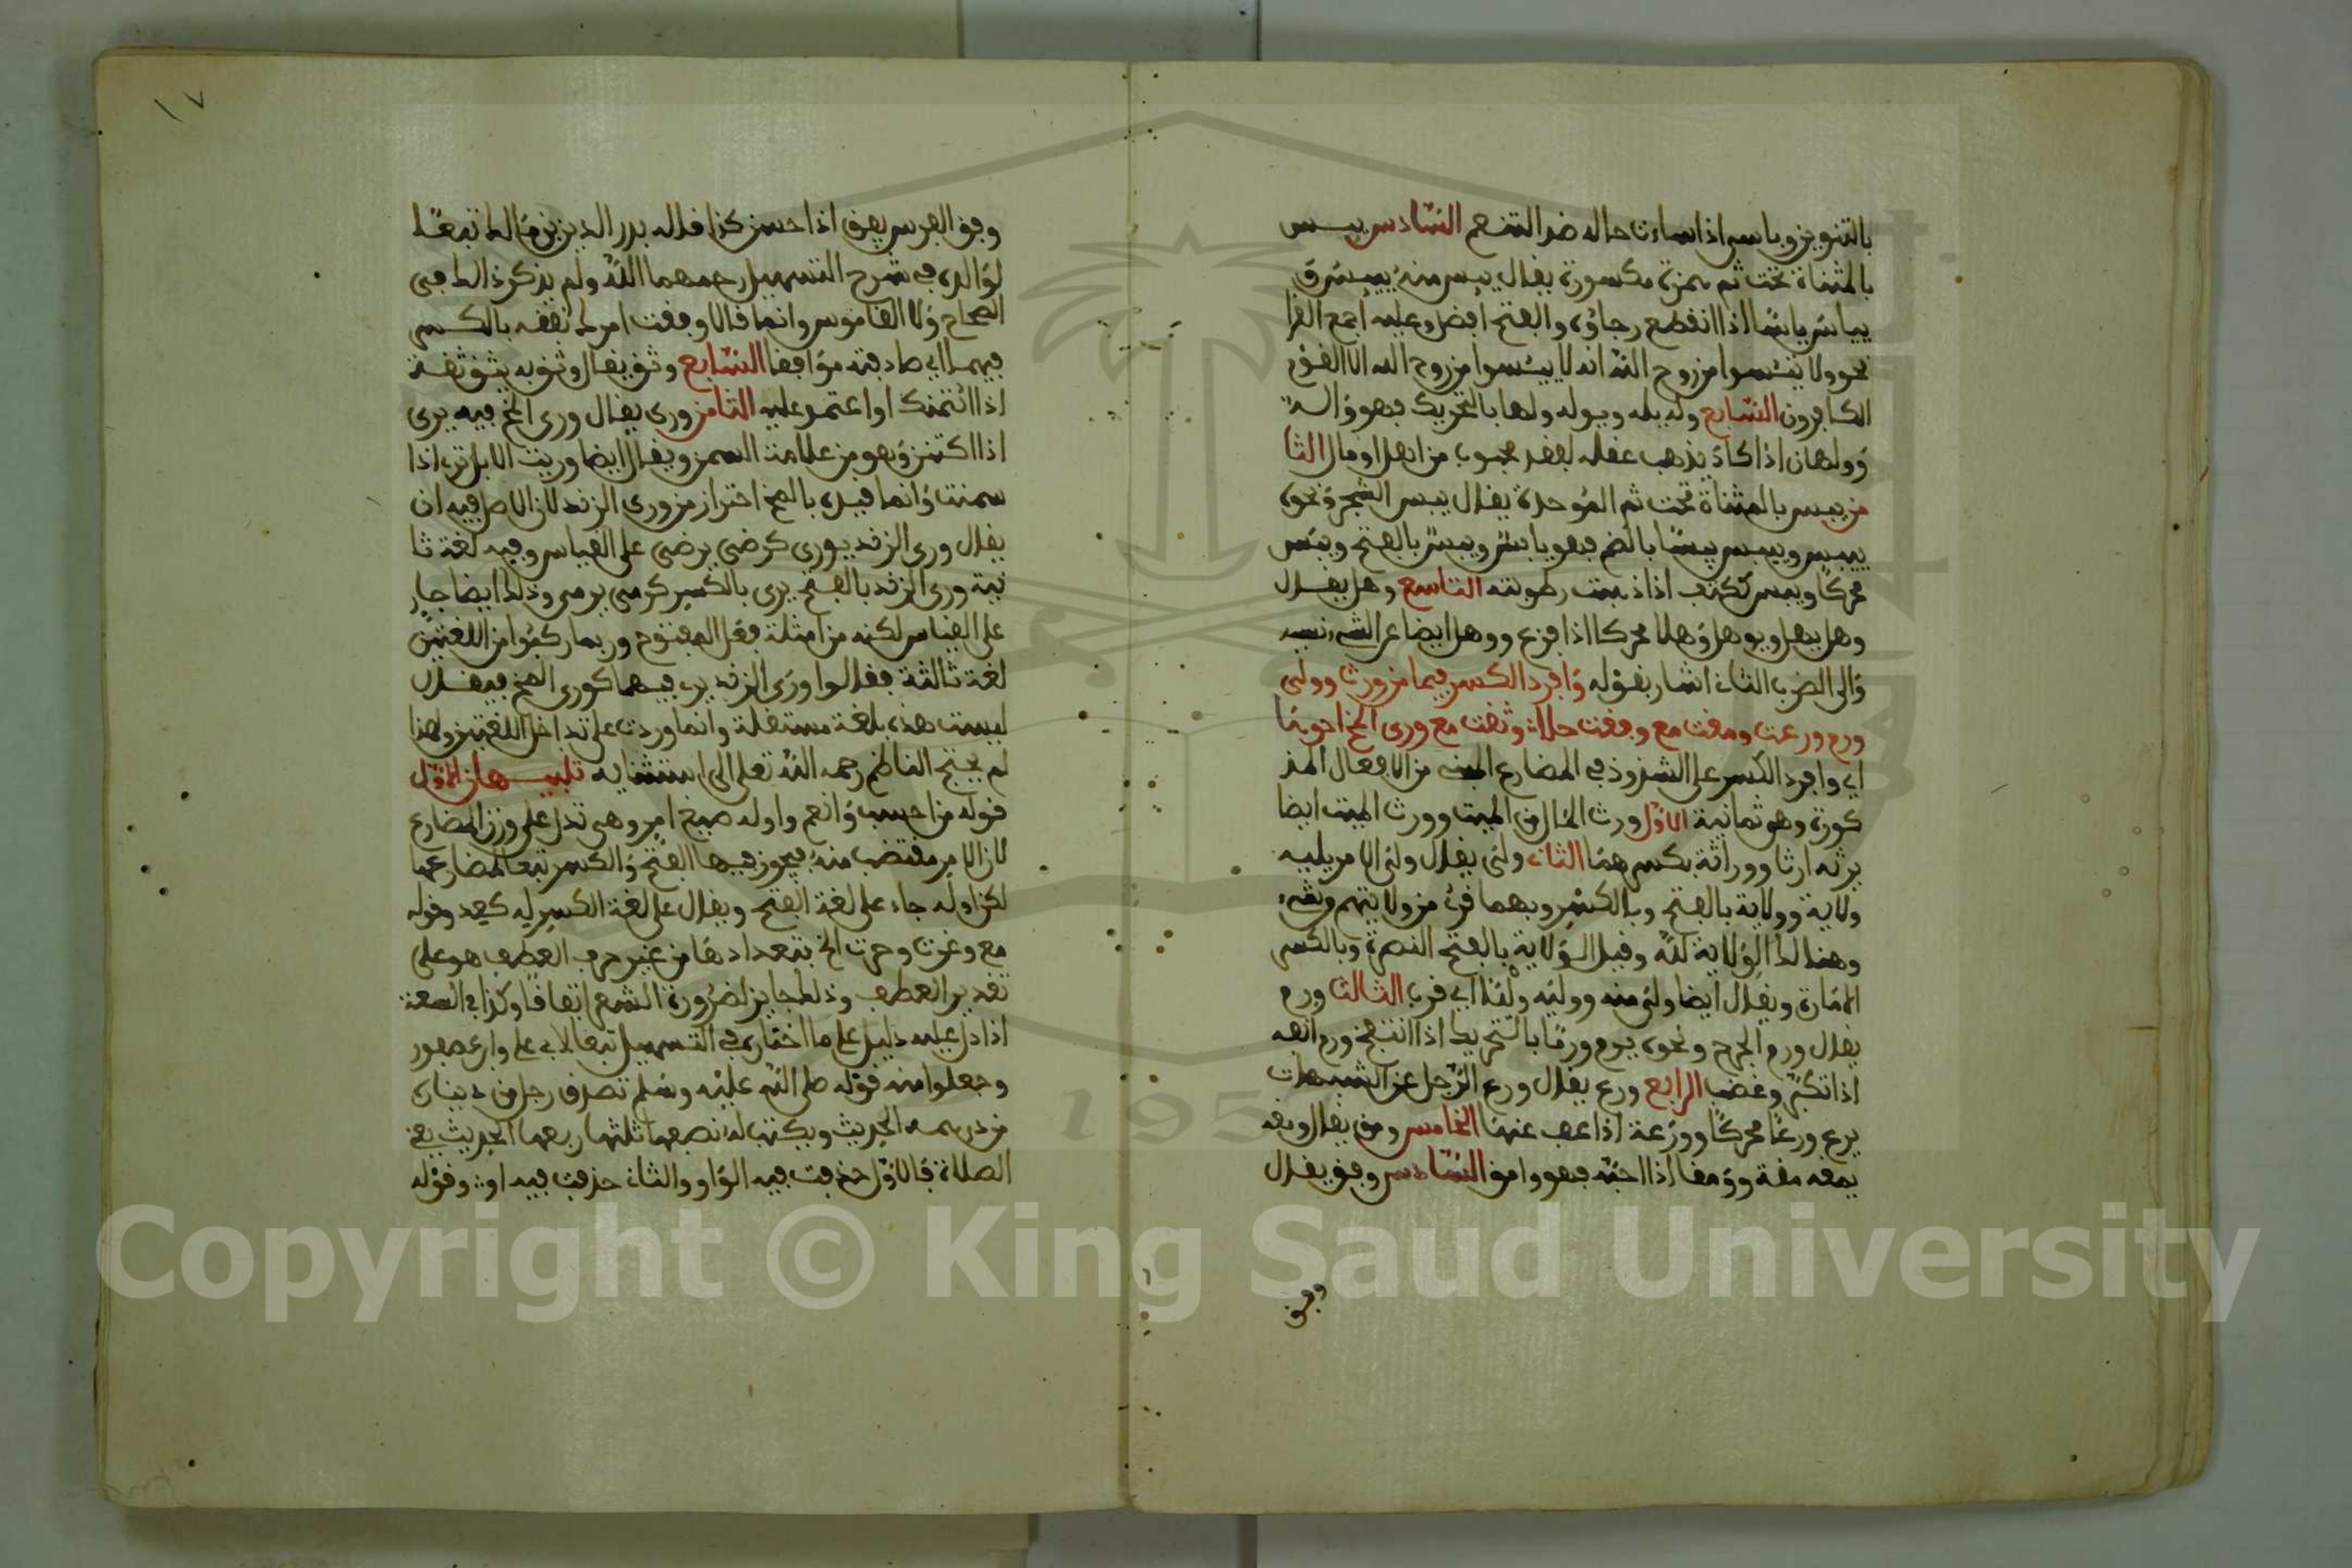 بالتنوين وبايس اذا ساءت حاله ضد التنعم السّادس ييــس
بالمثناة تحت ثم همزة مكسورة يقال ييس منه ييئس ق
ييأس يأسًا اذا انقطع رجاؤه والفتح افصح وعليه اجمع القرا
نحو ولا تيئسوا من روح اللّه انه لا ييئسوا من روح الله الا القوم
الكافرون السّابع وله يله ويوله ولها بالتحريك فهو واله
وولهان اذا كاد يذهب عقله لفقد محبوب من اهل او مال الثا
من يبس بالمثناة تحت ثم الموحدة يقال يبس الشجر ونحوه
ييبس وييبس يبسًا بالضم فهو يابس ويبس بالفتح ويبس
محركًا ويبس ككتف اذا ذهبت رطوبته التاسع وهل يقــال
وهل يهل ويوهل وهلا محركا اذا فزع ووهل ايضا عن الشيء نسيه
والى الضرب الثاني اشار بقوله وافرد الكسر فيما من ورث وولى
ورم ورعت ومقت مع وفقت حلا وثقت مع ورى المخ احوها
اي وافرد الكسر على الشذوذ في المضارع المبنى من الافعال المذ
كورة وهو ثمانية الاوّل ورث المال من الميت وورث الميت ايضا
يرثه ارثا ووراثة بكسرهمَا الثاني ولى يقال ولى الامر يليه
ولاية وولاية بالفتح وبالكسر وبهما قرئ من ولايتهم وبقيء
وهنالك الولاية للّه وقيل الولاية بالفتح النصرة وبالكسر
الامارة ويقال ايضا ولى منه ووليه وليًا اي قرب الثالث ورم
يقال ورم الجرح ونحوه يرم ورمًا بالتحريك اذا انتفخ ورم انفه
اذا تكبّر وغضب الرابع ورع يقال ورع الرّجل عن الشبهات
يرع ورعًا محركًا وورعة اذا عف عنها الخامس ومق يقال ومقه
يمقه مقة وومقا اذا احبّه فهو وامق السّادس وفق يقال
وفق
١٧
وفق الفرس يفق اذا حسن كذا قاله بدر الدين بن مالك تبعًا
لوالده في شرح التسهيل رحمهما اللّه ولم يذكر ذلك في
الصحاح ولا القاموس وانما قالا وفقت امرك تفقه بالكسر
فيهما اي صادفته موافقا السّابع وثق يقال وثق به يثق ثقــة
اذا ائتمنك او اعتمد عليه الثامن ورى يقال ورى المخ فيه يرى
اذا اكتنز وهو من علامة السمن ويقال ايضا وريت الابل ترى اذا
سمنت وانما قيده بالمخ احتراز من ورى الزند لان الاصل فيه ان
يقال ورى الزند يورى كرضى يرضى على القياس وفيه لغة ثا
نية ورى الزند بالفتح يرى بالكسر كرمى يرمى وذلك ايضا جار
على القياس لكنه من امثلة فعل المفتوح وربما ركبوا من اللغتين
لغة ثالثة فقالوا ورى الزند يرى فيهما كورى المخ فيقــال
ليست هذه بلغة مستقلة وانما وردت على تداخل اللغتين ولهذا
لم يحتج الناظم رحمه اللّه تعلى الى استثنايه تنبيــهان الاوّل
قوله من احسب وانعم واوله صيغ امر وهى تدل على وزن المضارع
لان الامر مقتضب منه فيجوز فيها الفتح والكسر تبعا لمضارعها
لكن اوله جاء على لغة الفتح ويقال على لغة الكسر له كعد وقوله
مع وغرت وحرت الخ بتعدادها من غير حرف العطف هو على
تقدير العطف وذلك جايز لضرورة الشعر اتفاقا وكذا في السعة
اذا دل عليه دليل على ما اختاره في التسهيل تبعا لابي علي وابن عصفور
وجعلوا منه قوله صلى اللّه عليه وسلم تصدق رجل من ديناره
من درهمه الحديث ويكتب له نصفها ثلثها ربعها الحديث يعنى
الصلاة فالاوّل حذفت فيه الواو والثاني حذفت فيه او وقوله